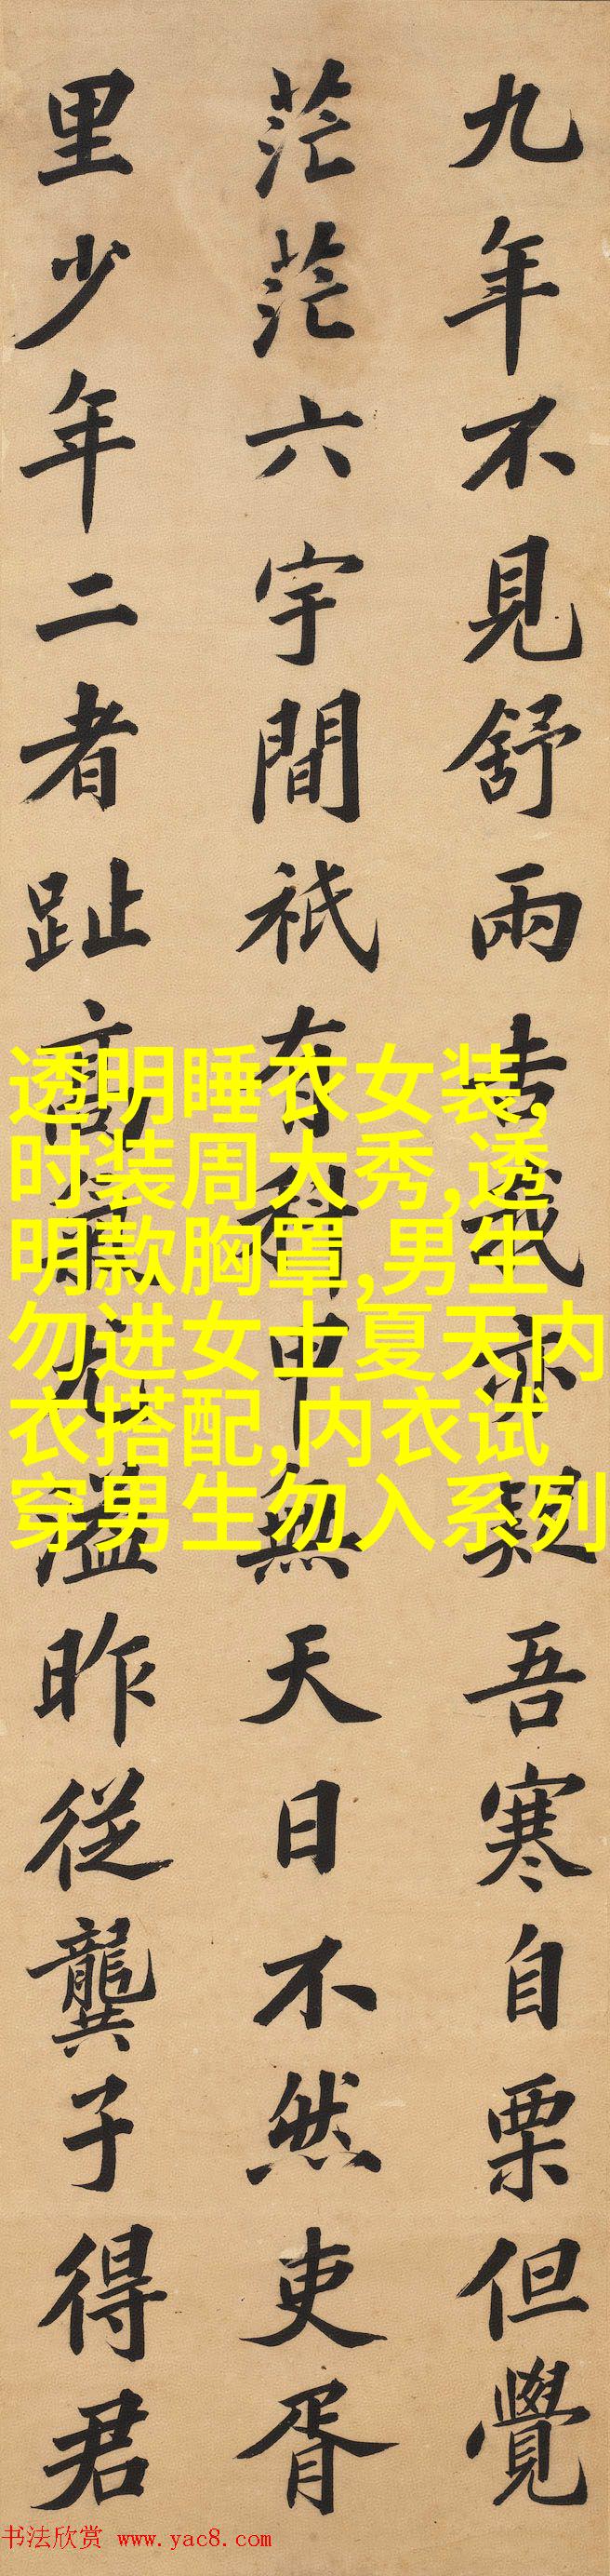 九年不見舒兩吉我亦疑吾寒自栗但覺
茫茫六宇間祇有科甲無天日不然吏胥
里少年二者趾高氣尤溢昨從龔子得君
透明睡衣女装,
时装周大秀,透
明款胸罩,男生
勿进女士夏天内
衣搭配,内衣试
穿男生勿入系列
书法欣赏 www.yac8.com